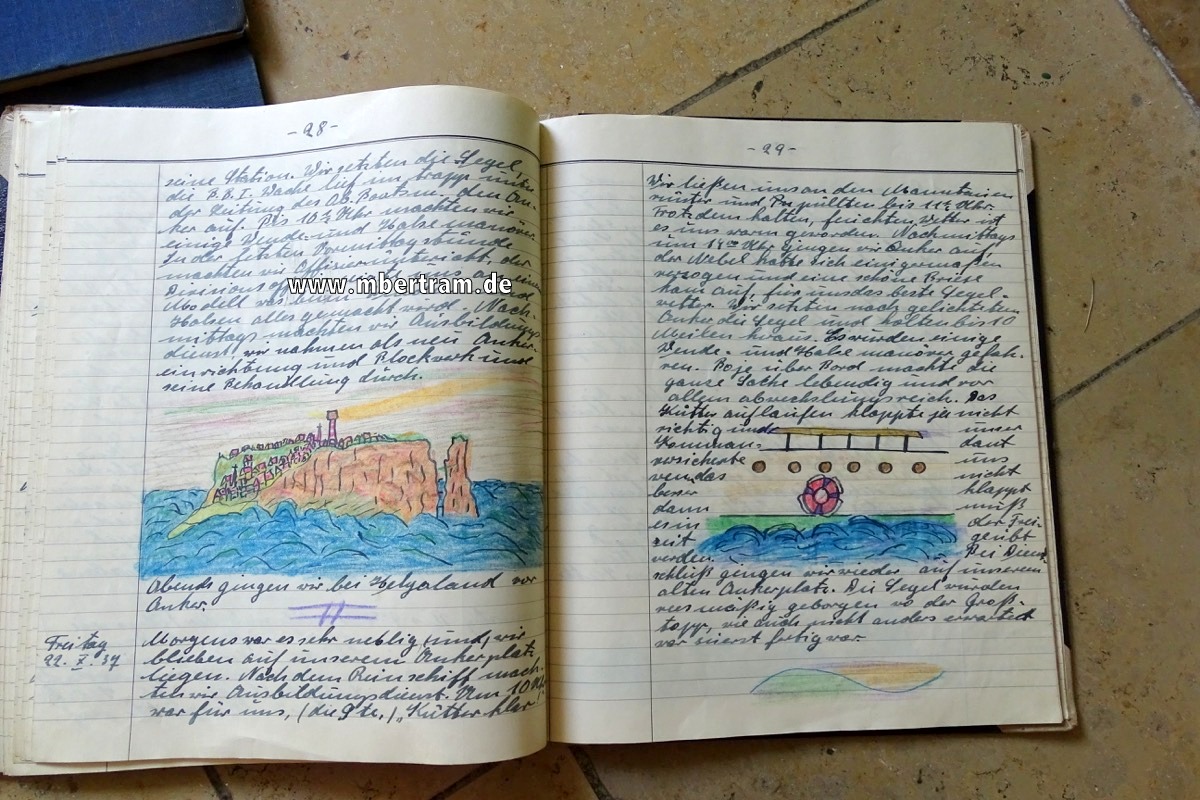 - 28 -
seine Station. Wir setzten die Segel,
die B.B.I. Wache lief im trapp unter
der Leitung des Ob. Bootsm. den An-
ker auf. Bis 10 Uhr machten wir
einige Wende- und Halse manöver.
In der letzten Vormittagsstunde
machten wir Offizierunterricht, der
Divisionsoffizier uns an einem
Modell was beim und
Halsen alles gemacht wird. Nach-
mittags machten wir Ausbildungs
dienst, wir nahmen als neu Anker-
einrichtung und Blockwerk und
seine Behandlung durch.
www.mbertram.de
Abends gingen wir bei Helgoland vor
Anker.
Freitag
22. X. 37
Morgens war es sehr neblig (und) wir
blieben auf unserem Ankerplatz
liegen. Nach dem Reinschiff mach-
ten wir Ausbildungsdienst. Um 10 Uhr
war für uns, (die 9te,) "Kutter klar!
- 29 -
Wir ließen uns an den Manntauen
runter und pullten bis 11 Uhr.
Trotz dem kalten, feuchten Wetter ist
es uns warm geworden. Nachmittags
um 14 Uhr gingen wir Anker auf,
der Nebel hatte sich einigermaßen
verzogen und eine schöne Briese
kam auf, für uns das beste Segel-
wetter. Wir setzten nach gelichteten
Anker die Segel und holten bis 10
Meilen heraus. Es wurden einige
Wende- und Halse manöver gefah-
ren. Boje über Bord machte die
ganze Sache lebendig und vor
allem abwechslungsreich. Das
Kutter auflaufen klappte ja nicht
richtig und unser
Komman- dant
versicherte uns
wen das nicht
besser klappt
dann muß
es in der Frei-
zeit geübt
werden. Bei Dienst
schluß gingen wir wieder auf unserem
alten Ankerplatz. Die Segel wurden
res mäßig geborgen wo der Groß-
topp, wie auch nicht anders erwartet
war zuerst fertig war